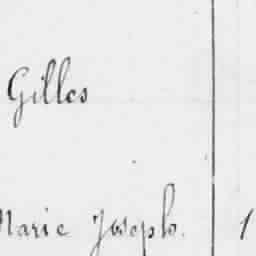 Gilles
Marie Joseph. 1